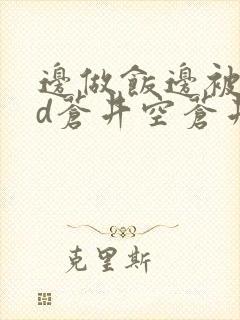 邊做飯邊被
d蒼井空蒼井
克里斯